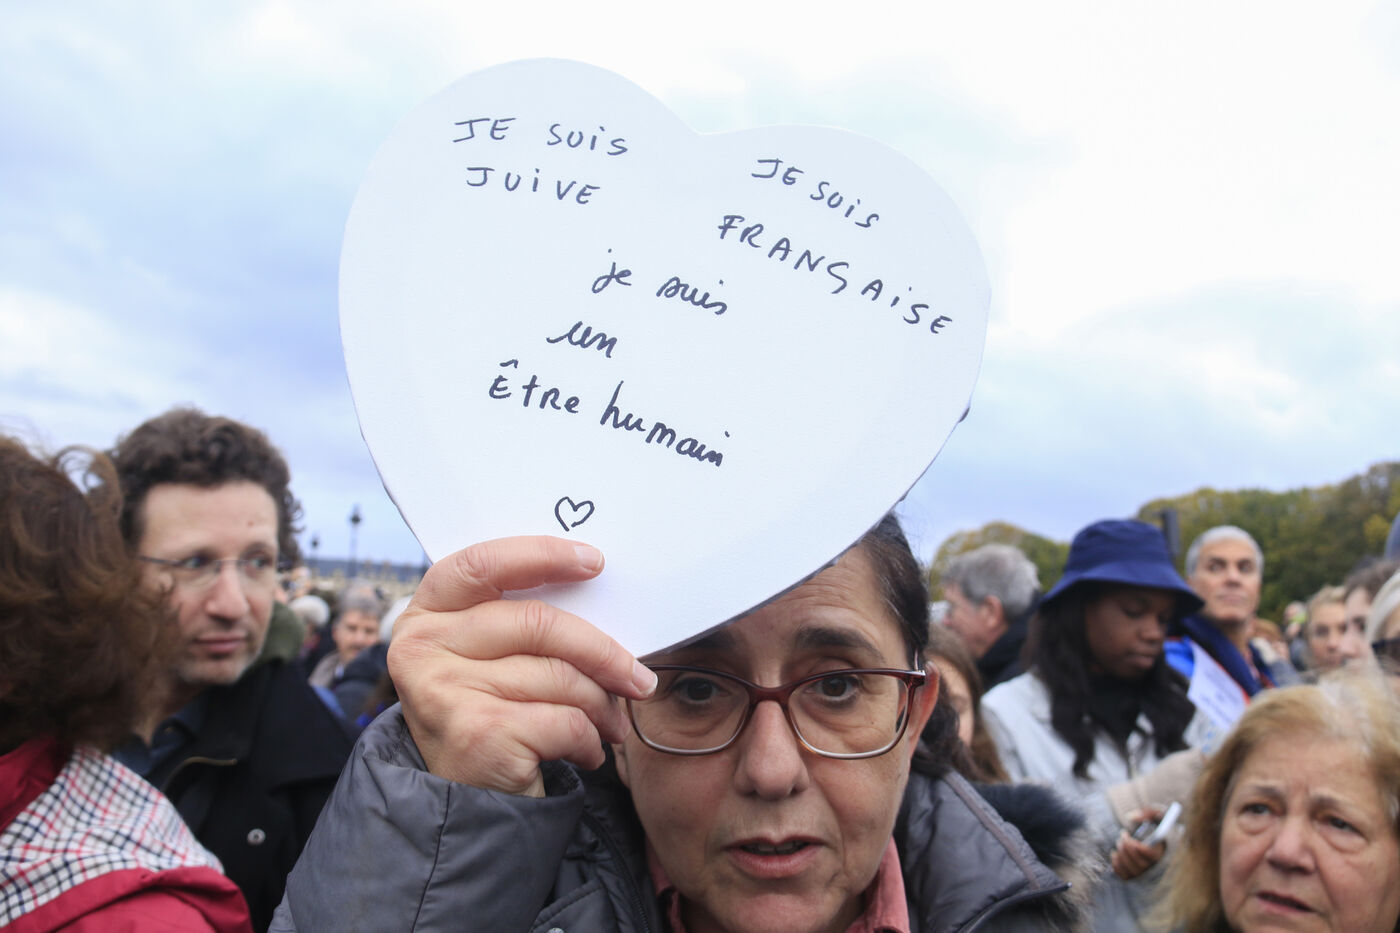 JE SUiS
JUiVE
JE SUiS
FRANÇAiSE
je suis
un
Être humain